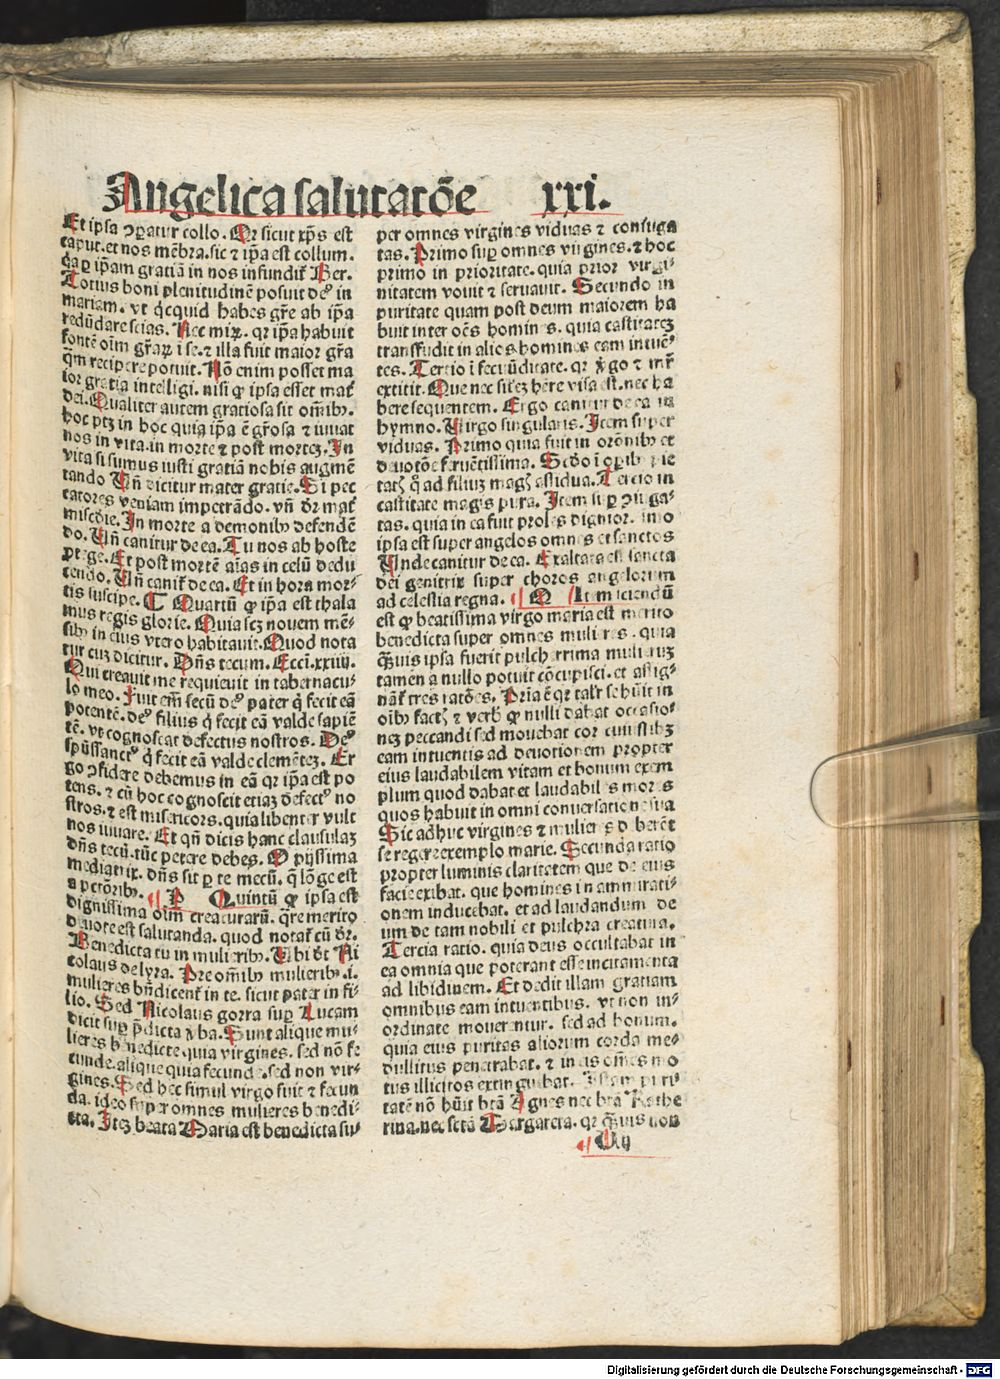 Angelica salutatōe xxi.
Et ipsa ↄꝑatur collo. Qꝛ sicut xp̄s est
caput. et nos mēbra. sic ⁊ ip̄a est collum.
q̄a ꝑ ip̄am gratiā in nos infundit᷑ Ber.
Totius boni plenitudinē posuit deꝰ in
mariam. vt q̇cquid habes gr̄e ab ip̄a
redūdare scias. Nec miꝝ. qꝛ ip̄a habuit
fontē oīm gr̄aꝝ ī se. ⁊ illa fuit maior gr̄a
q̄m recipere potuit. Nō enim posset ma
ior gratia intelligi. nisi ꝙ ipsa esset mat᷑
dei. Qualiter autem gratiosa sit om̄ibꝰ.
hoc ptꝫ in hoc quia ip̄a ē gr̄osa ⁊ iuuat
nos in vita. in morte ⁊ post morteꝫ. In
vita si sumus iusti gratiā nobis augmē
tando Vn̄ dicitur mater gratie. Si pec
catores veniam impetrādo. vn̄ dr̄ mat᷑
miscdie. In morte a demonibꝰ defendē
do. Vn̄ canitur de ea. Tu nos ab hoste
ꝓtege. Et post mortē aīas in celū dedu
cendo. Vn̄ canit᷑ de ea. Et in hora mor⸗
tis suscipe. ¶ Quartū ꝙ ipsa est thala
mus regis glorie. Quia scꝫ nouem mē⸗
sibꝰ in eius vtero habitauit. Quod nota
tur cuꝫ dicitur. Dn̄s tecum. Ecci. xxiiij.
Qui creauit me requieuit in tabernacu⸗
lo meo. Fuit em̄ secū deꝰ pater q̇ fecit eā
potentē. deꝰ filius q̇ fecit eā valde sapiē
tē. vt cognoscat defectus nostros. Deꝰ
spūssanctꝰ q̇ fecit eā valde clemēteꝫ. Er
go ↄfidere debemus in eā qꝛ ip̄a est po
tens. ⁊ cū hoc cognoscit etiaꝫ defectꝰ no
stros. ⁊ est misericors. quia libenter vult
nos iuuare. Et qn̄ dicis hanc clausulaꝫ
dn̄s tecū. tūc petere debes. O pijssima
mediatrix. dn̄s sit ꝑ te mecū. q̇ lōge est
a pctōribꝰ. P Quintū ꝙ ipsa est
dignissima oīm creaturarū. q̄re merito
deuote est salutanda. quod notat᷑ cū dr̄.
Benedicta tu in mulieribꝰ. Vbi dt̄ Ni
colaus de lyra. Pre om̄ibꝰ mulieribꝰ. i.
mulieres bn̄dicent᷑ in te. sicut pater in fi⸗
lio. Sed Nicolaus gorra suꝑ Lucam
dicit suꝑ p̄dicta v̄ba. Sunt alique mu⸗
lieres benedicte quia virgines. sed nō fe
cunde. alique quia fecunde. sed non vir⸗
gines. Sed hec simul virgo fuit ⁊ fecun
da. ideo super omnes mulieres benedi⸗
cta. Iteꝫ beata Maria est benedicta su⸗
per omnes virgines viduas ⁊ coniuga
tas. Primo suꝑ omnes virgines. ⁊ hoc
primo in prioritate. quia prior virgi⸗
nitatem vouit ⁊ seruauit. Secundo in
puritate quam post deum maiorem ha
buit inter oēs homines. quia castitateꝫ
transfudit in alios homines eam intuē⸗
tes. Tertio ī fecūditate. qꝛ v̄go ⁊ mr̄
extitit. Que nec sil'eꝫ hēre visa est. nec ha
bere sequentem. Ergo canitur de ea in
hymno. Virgo singularis. Item super
viduas. Primo quia fuit in orōnibꝰ et
deuotōe feruētissima. Scdo ī oꝑibꝰ pie
tatꝭ q̇ ad filiuꝫ magꝭ assidua. Tercio in
castitate magis pura. Item suꝑ ↄiuga⸗
tas. quia in ea fuit proles dignior. imo
ipsa est super angelos omnes et sanctos
Vnde canitur de ea. Exaltata est sancta
dei genitrix super choros angelorum
ad celestia regna. Q Item sciendū
est ꝙ beatissima virgo maria est merito
benedicta super omnes mulieres. quia
q̄uis ipsa fuerit pulcherrima mulieruꝫ
tamen a nullo potuit cōcupisci. et assig⸗
nāt᷑ tres ratōes. Pria ē qꝛ tal'r se hūit in
oībꝰ factꝭ ⁊ verbꝭ ꝙ nulli dabat occasio⸗
neꝫ peccandi sed mouebat cor cuiuslibꝫ
eam intuentis ad deuotionem propter
eius laudabilem vitam et bonum exem
plum quod dabat et laudabiles mores
quos habuit in omni conuersatione sua
Sic adhuc virgines ⁊ mulieres deberēt
se regere exemplo marie. Secunda ratio
propter luminis claritatem que de eius
facie exibat. que homines in ammirati⸗
onem inducebat. et ad laudandum de
um de tam nobili et pulchra creatura.
Tercia ratio. quia deus occultabat in
ea omnia que poterant esse incitamenta
ad libidinem. Et dedit illam gratiam
omnibus eam intuentibus. vt non in⸗
ordinate mouerentur. sed ad bonum.
quia eius puritas aliorum corda me⸗
dullitus penetrabat. ⁊ in eis om̄es mo
tus illicitos extinguebat. Istam puri⸗
tatē nō hūit btā Agnes nec btā Kathe
rina. nec sctā Margareta. qꝛ q̄uis non